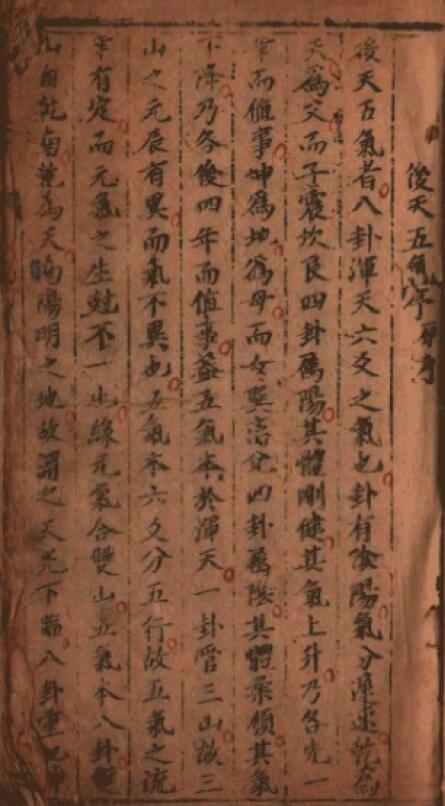 後天五氣序
後天五氣者八卦渾天六爻之氣也卦有陰陽氣分遲速乾為
天為父而子震坎艮四卦屬陽其體剛健其氣上升乃各先一
年而值事坤為地為母而女巽离兌四卦屬陰其體柔順其氣
下降乃各後四年而值事蓋五氣本於渾天一卦管三山故三
山之元辰有異而氣不異也五氣本六爻分五行故五氣之流
年有定而元氣之生尅不一也緣元氣合雙山五氣本八卦雙
山自乾為天陽明之地故謂之天光下臨八卦重